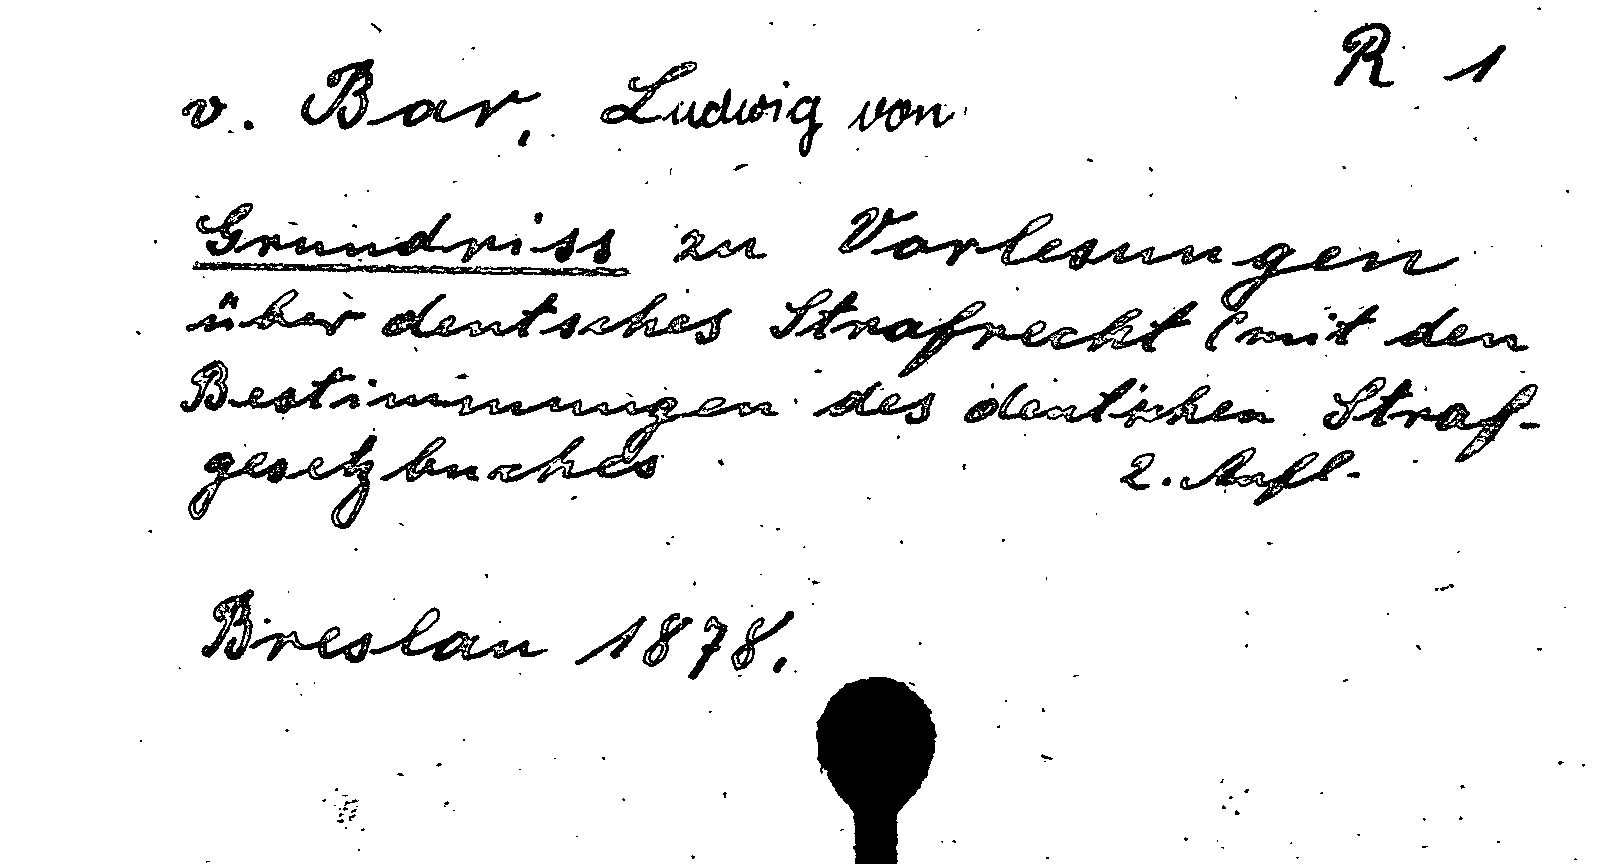 R 1
v. Bar, Ludwig von
Grundriss zu Vorlesungen
über deutsches Strafrecht (mit den
Bestimmungen des deutschen Straf-
gesetzbuches 2. Aufl.
Breslau 1878.